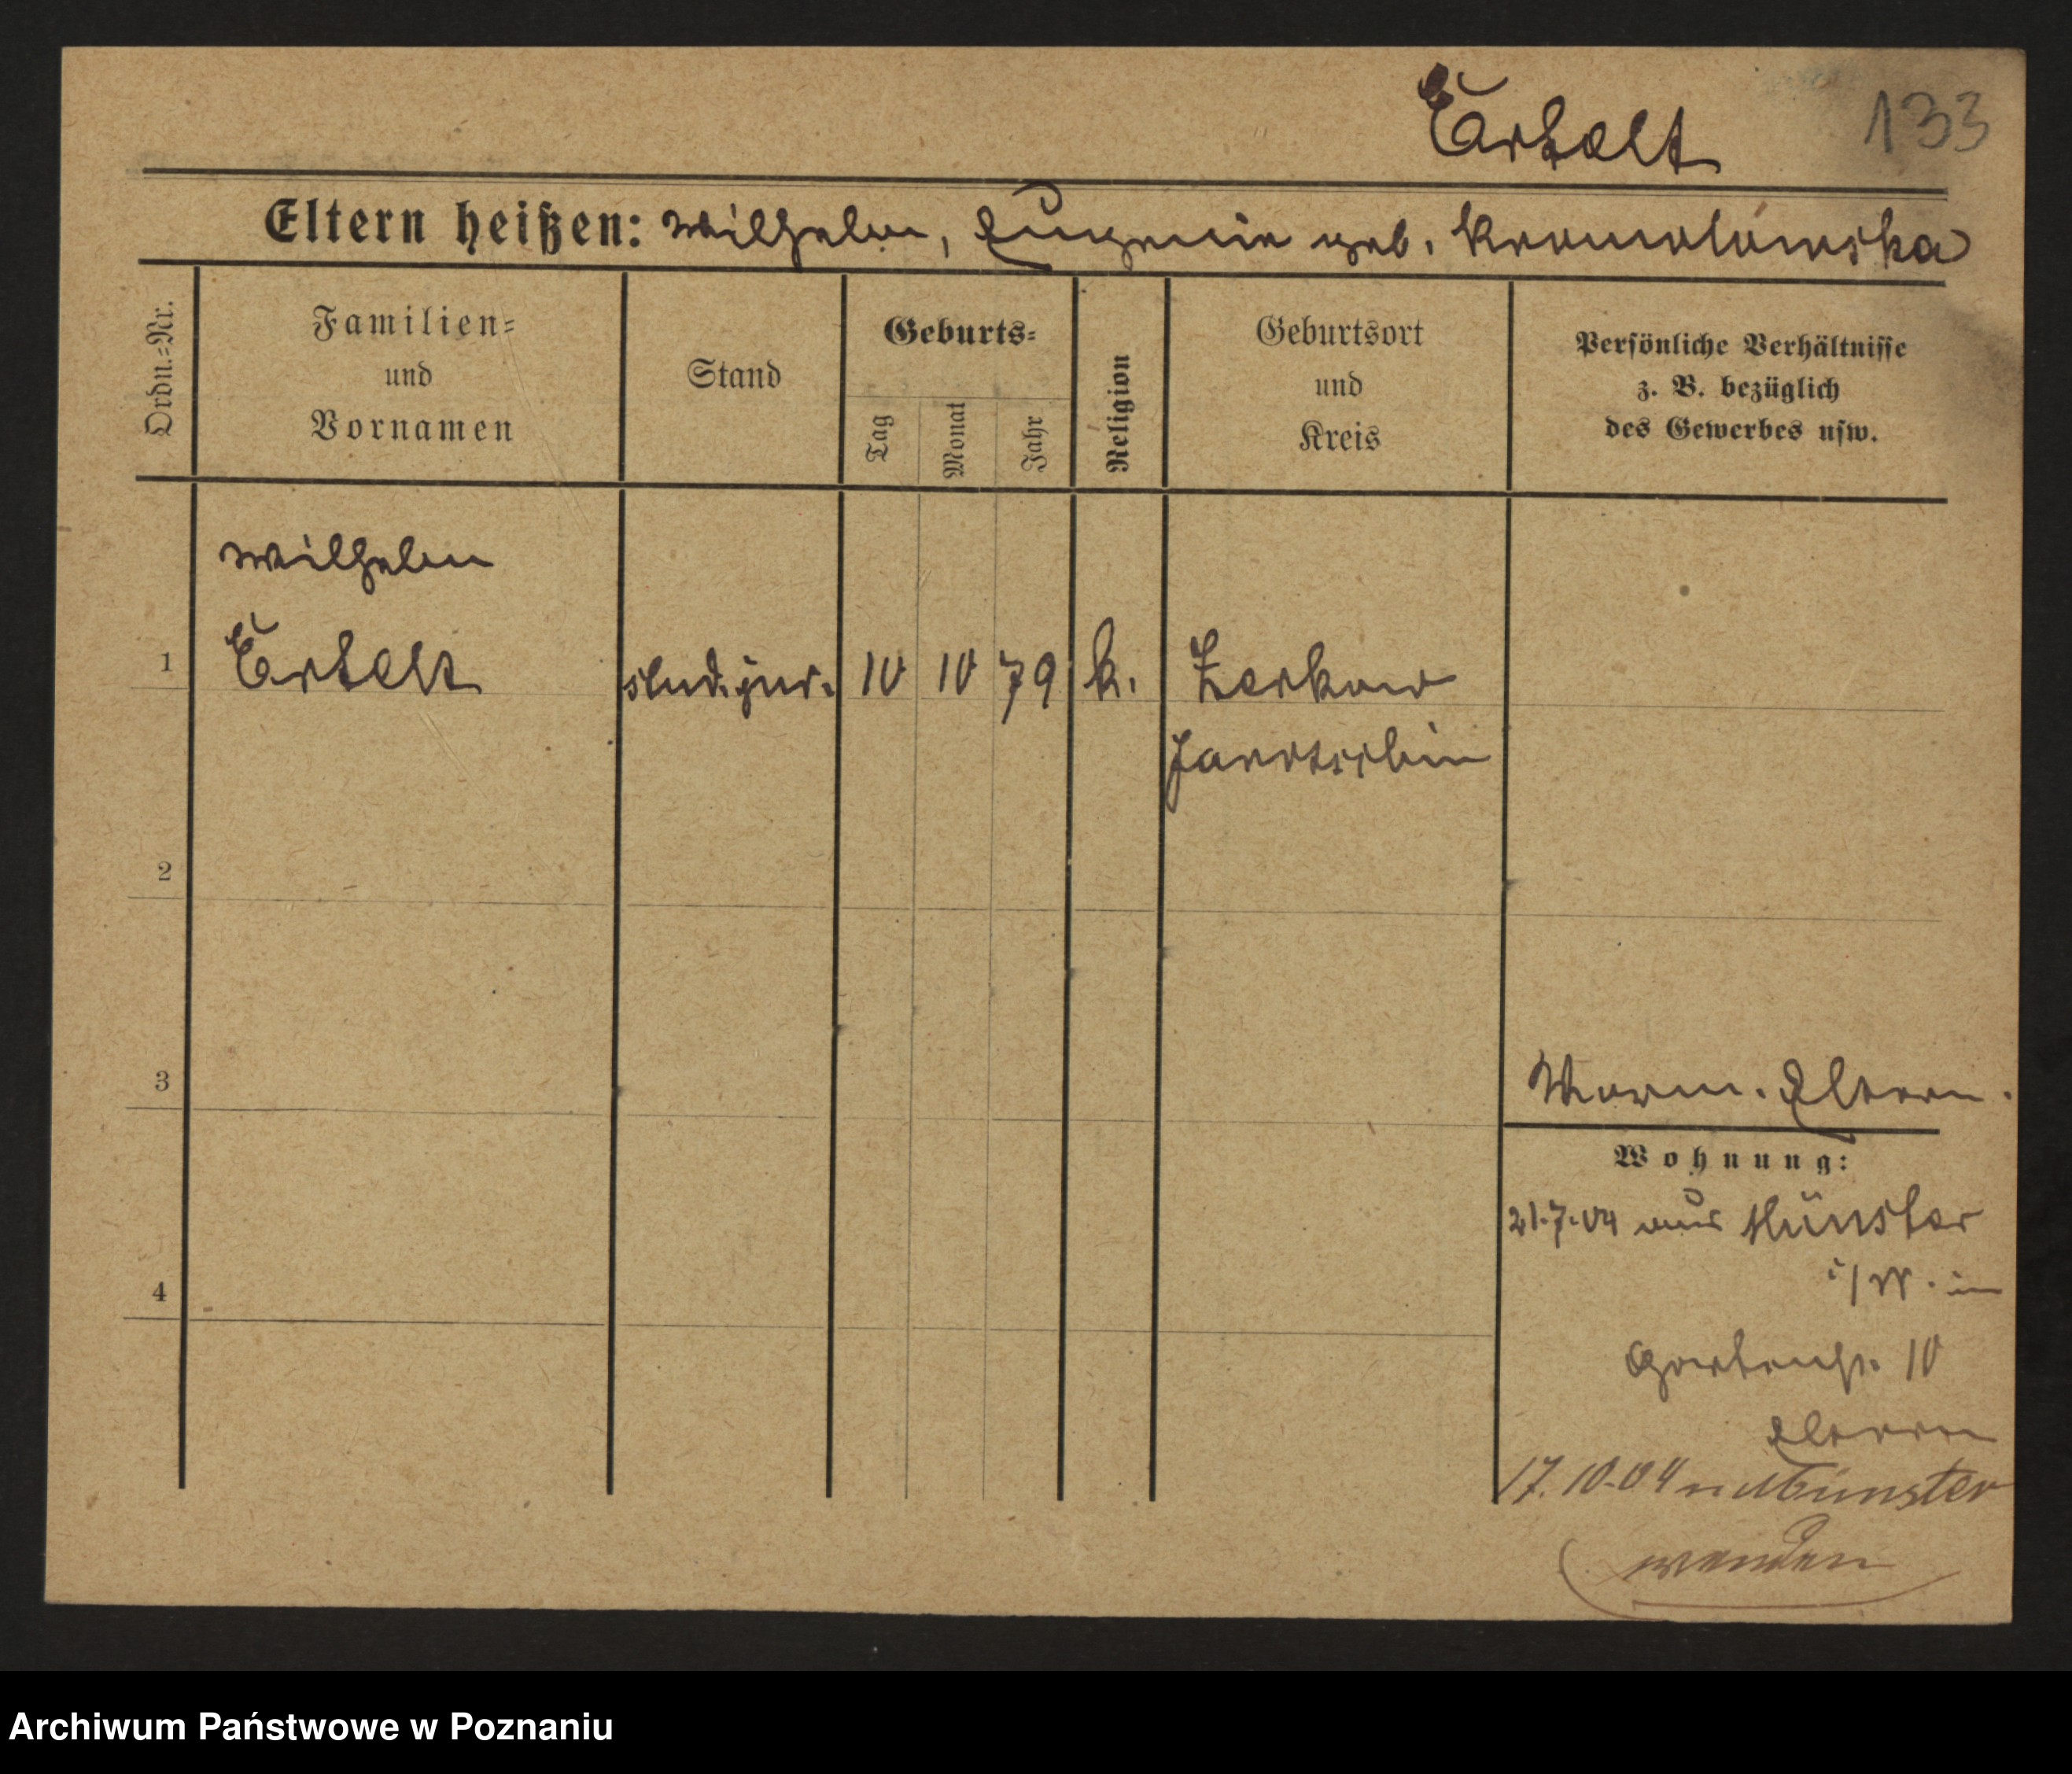 Ertelt 133
Eltern heißen: Wilhelm, Eugenie geb. Kromolowska
Ordn.=Nr.
Familien=
und
Vornamen
Stand
Geburts=
Tag
Monat
Jahr
Religion
Geburtsort
und
Kreis
Persönliche Verhältnisse
z. B. bezüglich
des Gewerbes usw.
Wilhelm
1 Ertelt stud. jur. 10 10 79 k. Zerkow
Jarotschin
2
3
Eltern.
Wohnung:
21.7.04 aus Münster
i/W. in
Gartenstr. 10
Eltern
4
17.10.04 n Münster
wenden
Archiwum Państwowe w Poznaniu